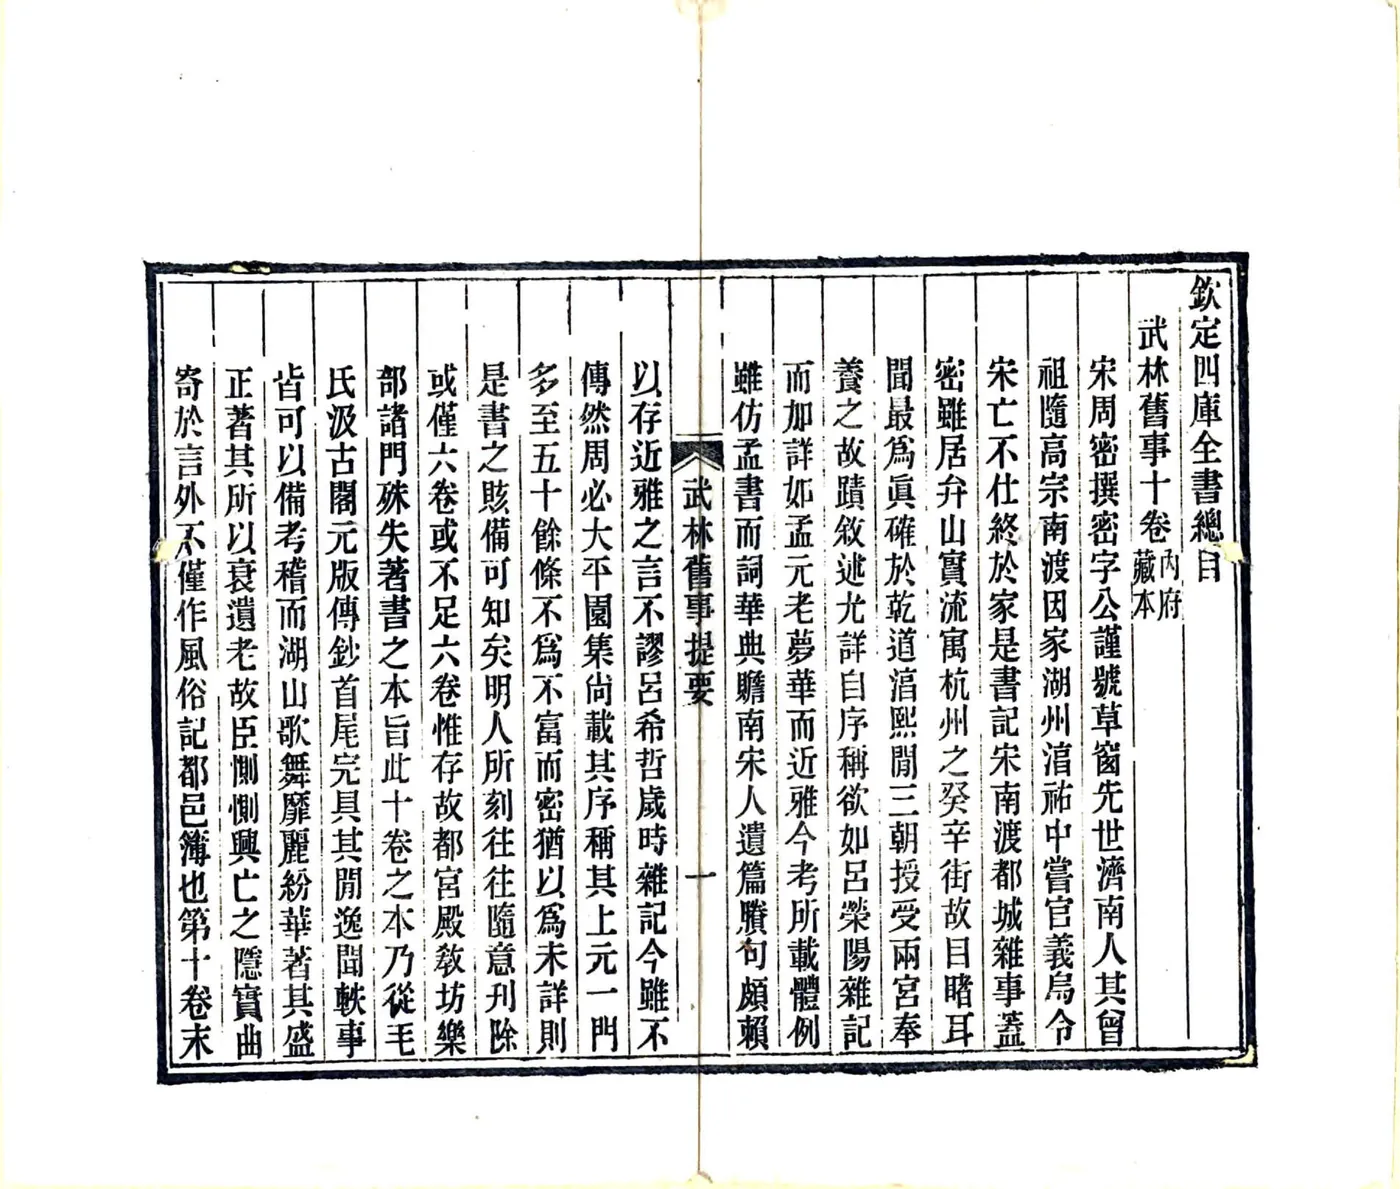 欽定四庫全書總目
武林舊事十卷內府藏本
宋周密撰密字公謹號草窗先世濟南人其曾
祖隨高宗南渡因家湖州湻祐中嘗官義烏令
宋亡不仕終於家是書記宋南渡都城雜事蓋
密雖居弁山實流寓杭州之癸辛街故目睹耳
聞最爲眞確於乾道湻熙閒三朝授受兩宮奉
養之故蹟敘述尤詳自序稱欲如呂滎陽雜記
而加詳如孟元老夢華而近雅今考所載體例
雖仿孟書而詞華典贍南宋人遺篇賸句頗賴
武林舊事提要
一
以存近雅之言不謬呂希哲歲時雜記今雖不
傳然周必大平園集尙載其序稱其上元一門
多至五十餘條不爲不富而密猶以爲未詳則
是書之賅備可知矣明人所刻往往隨意刋除
或僅六卷或不足六卷惟存故都宮殿敎坊樂
部諸門殊失著書之本旨此十卷之本乃從毛
氏汲古閣元版傳鈔首尾完具其閒逸聞軼事
皆可以備考稽而湖山歌舞靡麗紛華著其盛
正著其所以衰遺老故臣惻惻興亡之隱實曲
寄於言外不僅作風俗記都邑簿也第十卷末